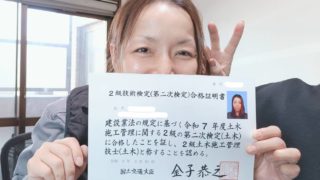 2級技術検定(第二次検定)合格証明書
建設業法の規定に基づく令和7年度土木
施工管理に関する2級の第二次検定(土木)
に合格したことを証し、2級土木施工管理
技士(土木)と称することを認める。
国土交通大臣 金子恭之